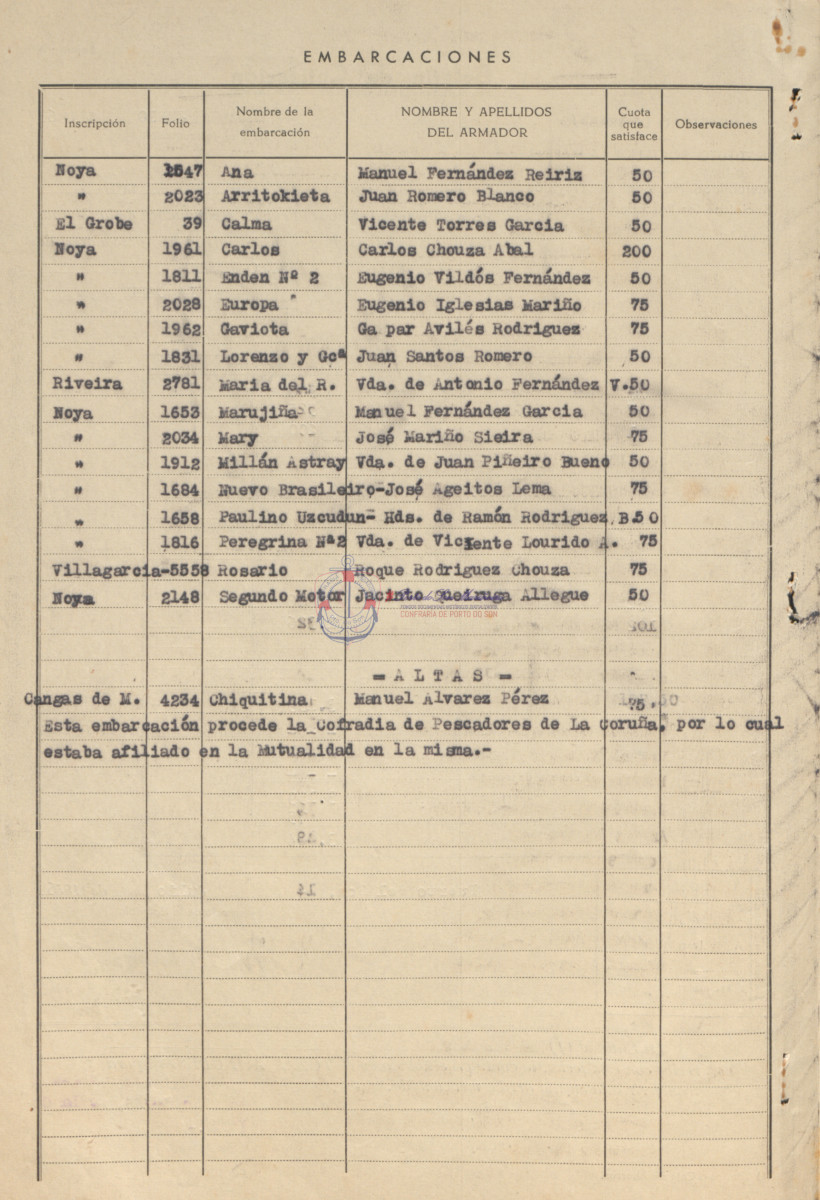 EMBARCACIONES
Inscripción Folio Nombre de la embarcación NOMBRE Y APELLIDOS DEL ARMADOR Cuota que satisface Observaciones
Noya 1547 Ana Manuel Fernández Reiriz 50
" 2023 Arritokieta Juan Romero Blanco 50
El Grobe 39 Calma Vicente Torres Garcia 50
Noya 1961 Carlos Carlos Chouza Abal 200
" 1811 Enden Nº 2 Eugenio Vildós Fernández 50
" 2028 Europa Eugenio Iglesias Mariño 75
" 1962 Gaviota Ga par Avilés Rodriguez 75
" 1831 Lorenzo y Gcª Juan Santos Romero 50
Riveira 2781 Maria del R. Vda. de Antonio Fernández V. 50
Noya 1653 Marujiña Manuel Fernández Garcia 50
" 2034 Mary José Mariño Sieira 75
" 1912 Millán Astray Vda. de Juan Piñeiro Bueno 50
" 1684 Nuevo Brasileiro-José Ageitos Lema 75
" 1658 Paulino Uzcudun- Hds. de Ramón Rodriguez B. 50
" 1816 Peregrina Nª2 Vda. de Vicente Lourido A. 75
Villagarcia-5558 Rosario Roque Rodriguez Chouza 75
Noya 2148 Segundo Motor Jacinto Queiruga Allegue 50
CONFRARÍA DE PORTO DO SON
= A L T A S =
Cangas de M. 4234 Chiquitina Manuel Alvarez Pérez 75.
Esta embarcación procede la Cofradia de Pescadores de La Coruña, por lo cual
estaba afiliado en la Mutualidad en la misma.-